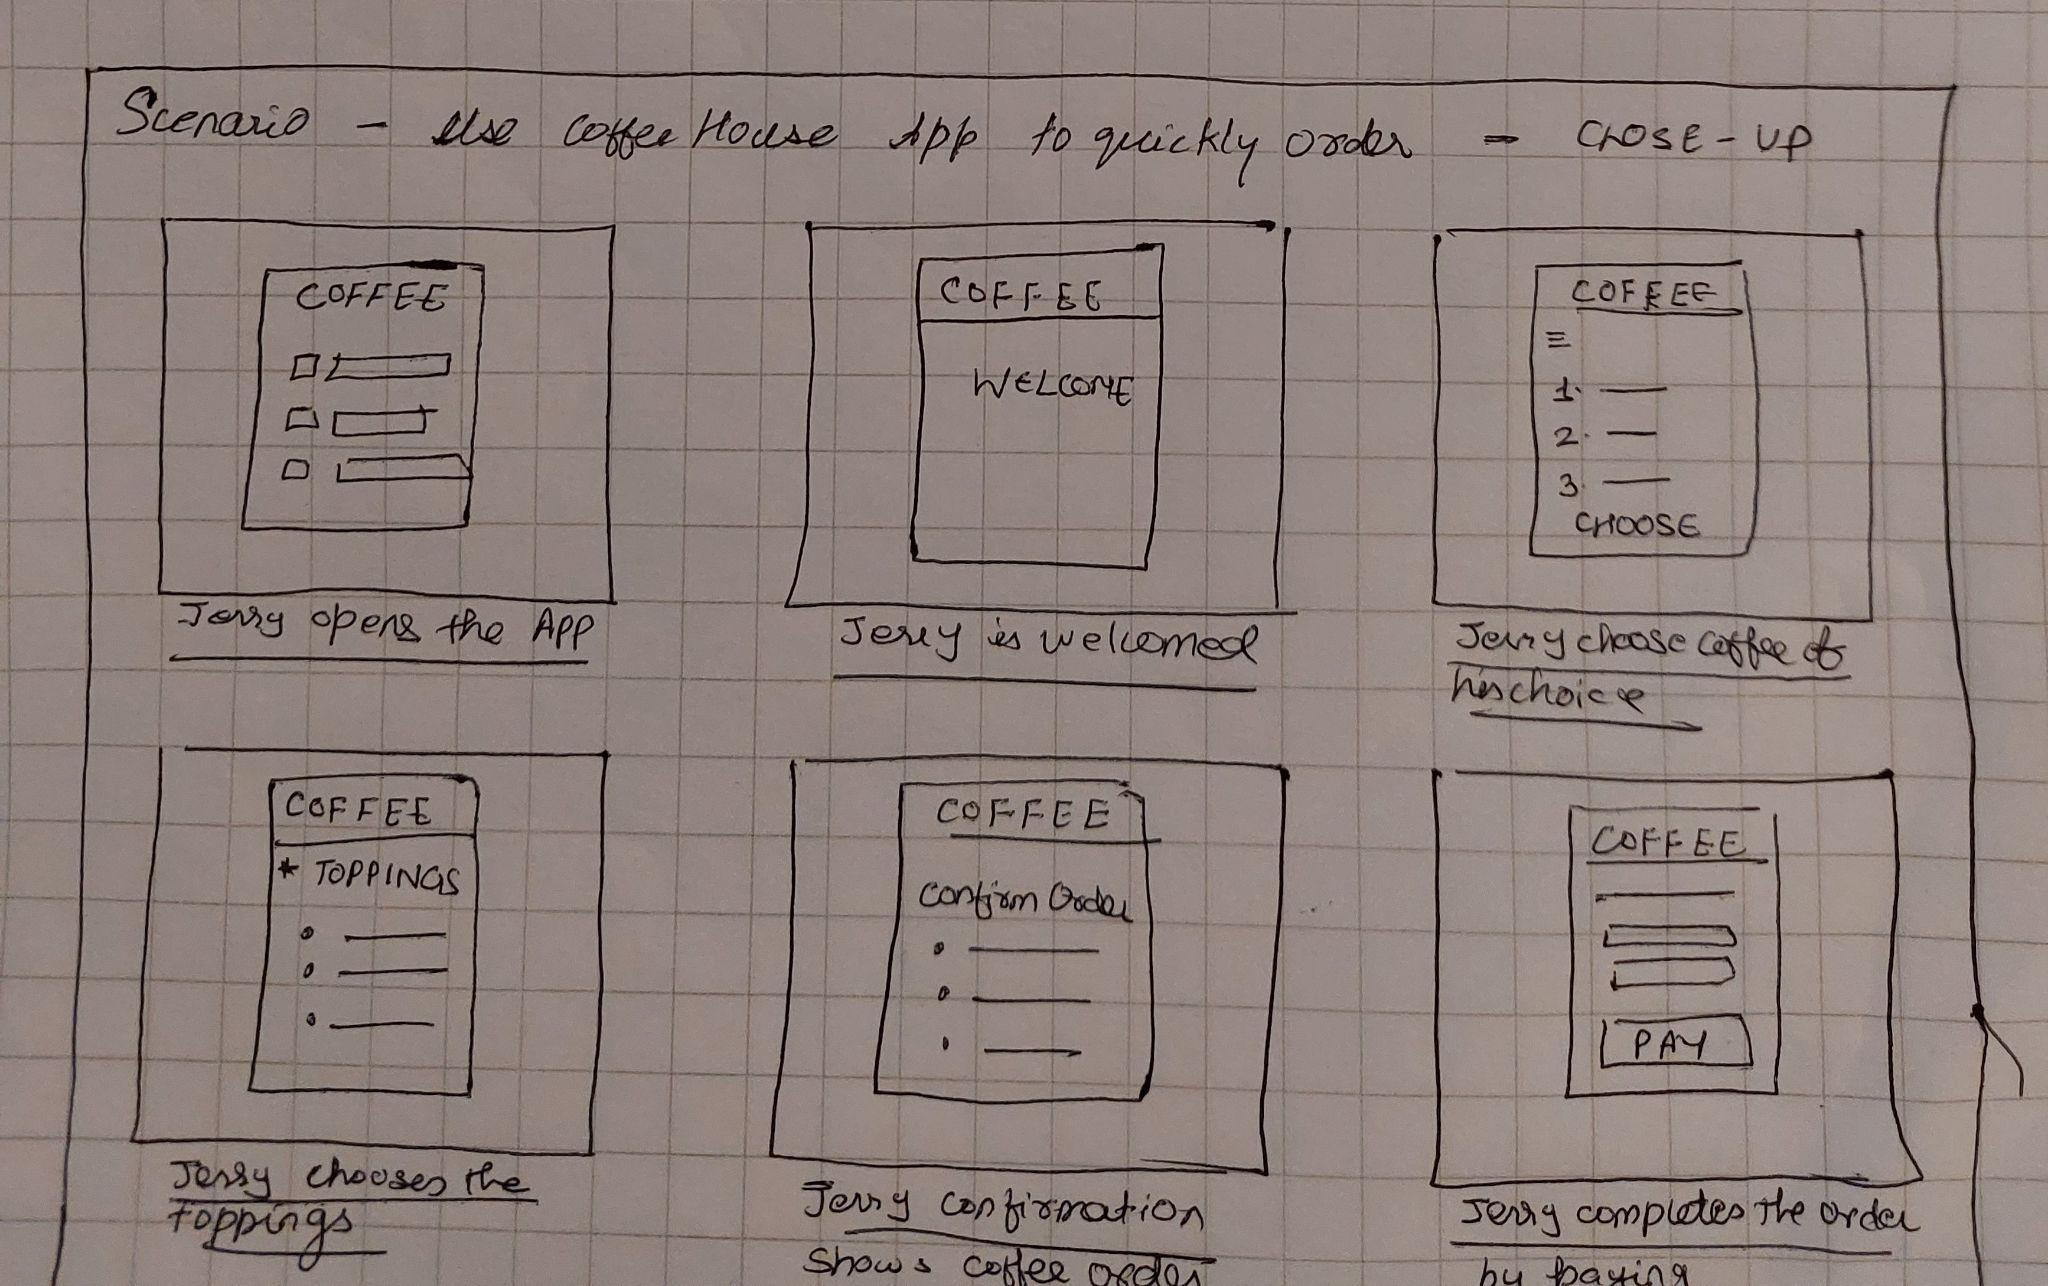 Scenario - Use Coffee House App to quickly order - CLOSE-UP
COFFEE
Jerry opens the App
COFFEE
WELCOME
Jerry is welcomed
COFFEE
1.
2.
3.
CHOOSE
Jerry choose coffee of
his choice
COFFEE
* TOPPINGS
Jerry chooses the
toppings
COFFEE
Confirm Order
Jerry confirmation
shows coffee order
COFFEE
PAY
Jerry completes the order
by paying